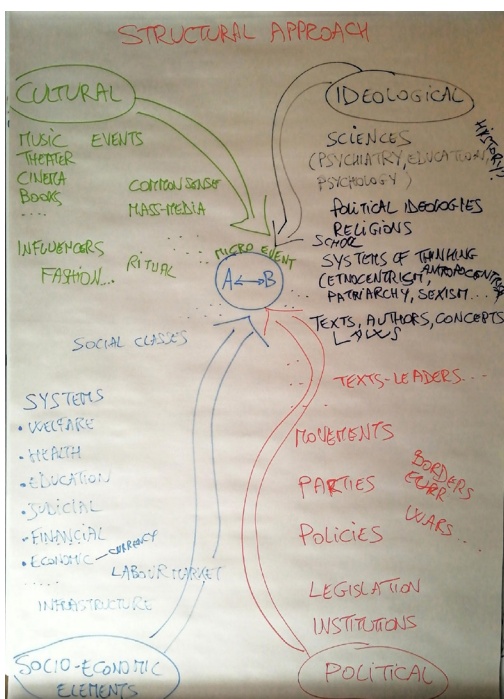 STRUCTURAL APPROACH
CULTURAL
MUSIC EVENTS
THEATER
CINEMA
BOOKS
....
COMMONSENSE
MASS-MEDIA
INFLUENCERS
FASHION...
RITUAL
IDEOLOGICAL
SCIENCES
(PSYCHIATRY, EDUCATION,
PSYCHOLOGY)
POLITICAL IDEOLOGIES
RELIGIONS
SCHOOL
SYSTEMS OF THINKING
(ETNOCENTRISM,
PATRIARCHY, SEXISM...
TEXTS, AUTHORS, CONCEPTS
LAWS
MICRO EVENT
A ↔ B
SOCIAL CLASSES
SYSTEMS
• WELFARE
• HEALTH
• EDUCATION
• JUDICIAL
• FINANCIAL
• ECONOMIC — CURRENCY
.....
LABOUR MARKET
INFRASTRUCTURE
SOCIO-ECONOMIC
ELEMENTS
TEXTS-LEADERS...
MOVEMENTS
PARTIES
POLICIES
BORDERS
WARS...
LEGISLATION
INSTITUTIONS
POLITICAL